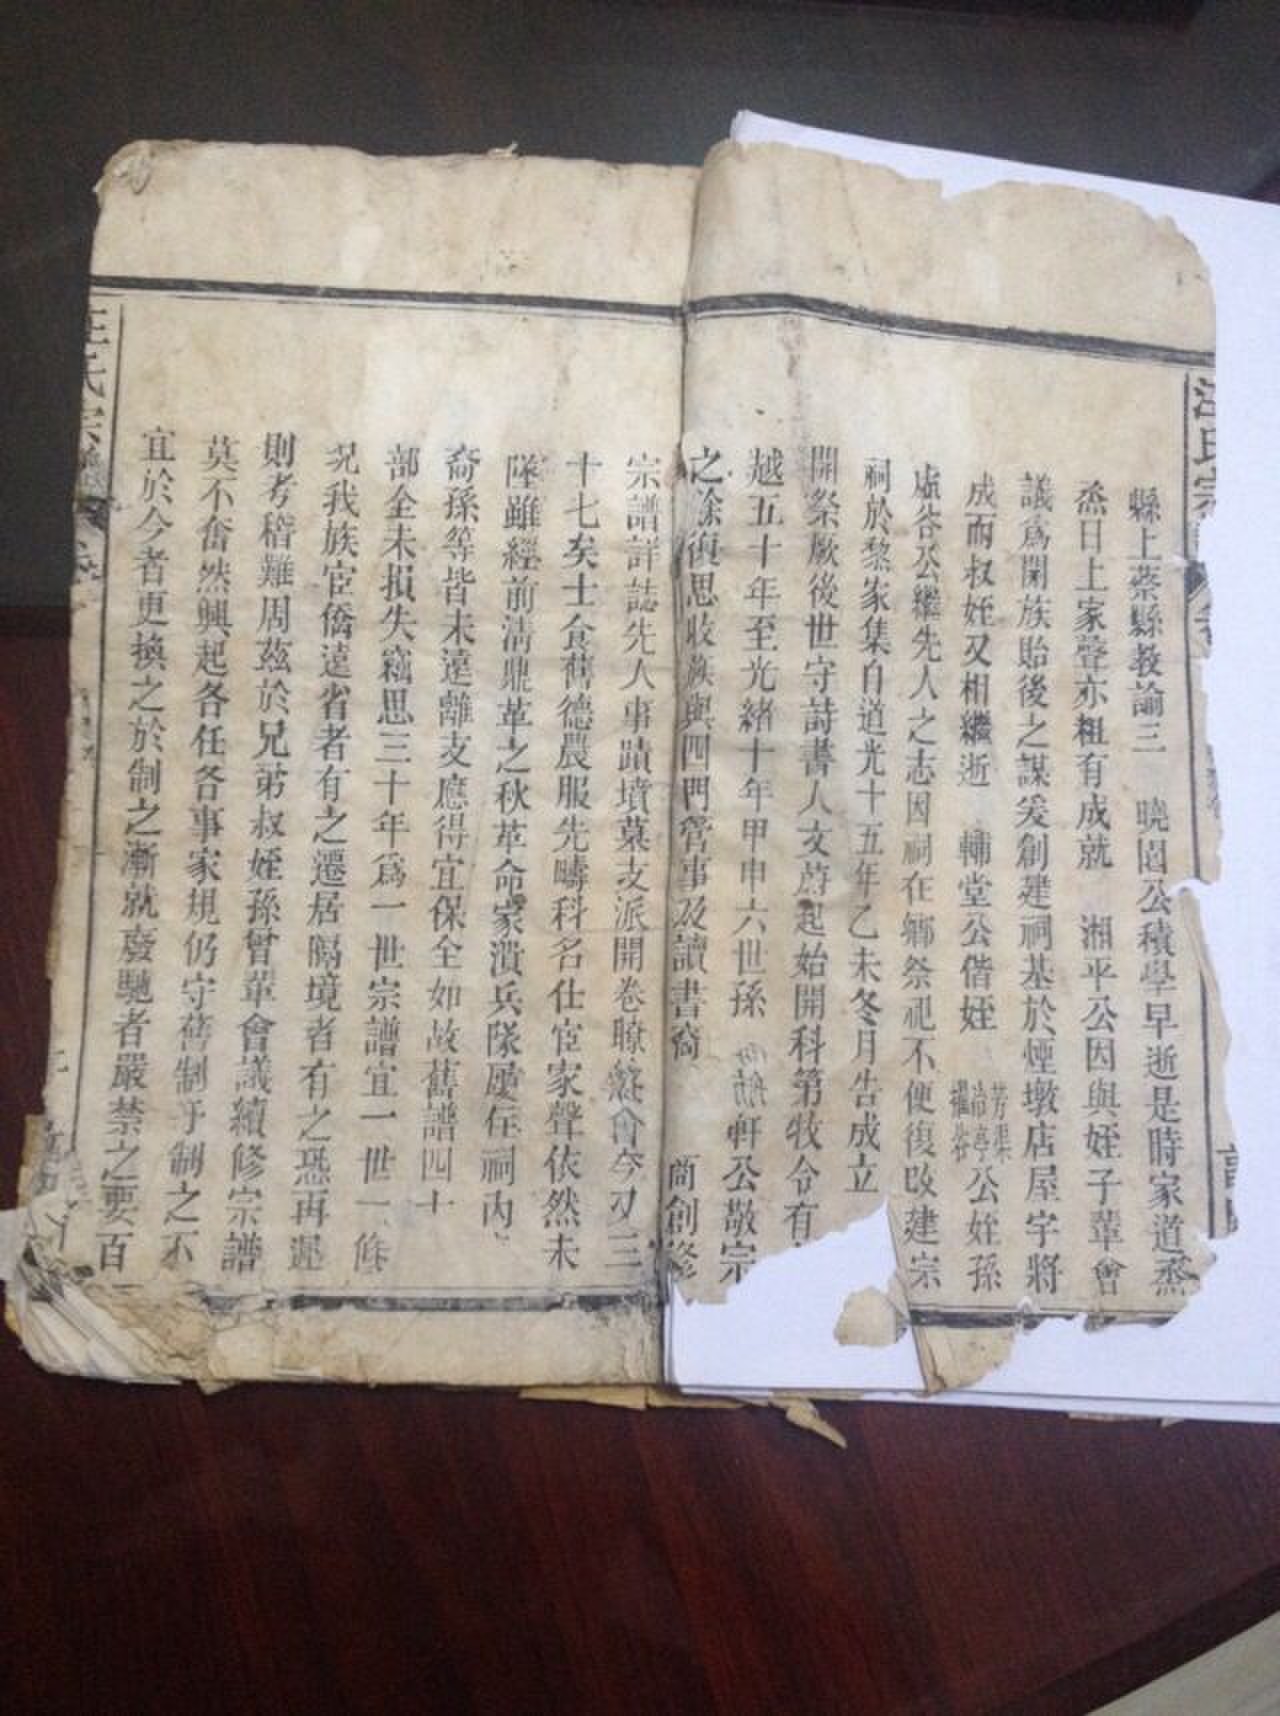 汪氏宗
縣上蔡縣教諭三 曉園公積學早逝是時家道烝
烝日上家聲亦粗有成就 湘平公因與姪子輩會
議爲開族貽後之謀爰創建祠基於煙墩店屋宇將
成而叔姪又相繼逝 輔堂公偕姪 公姪孫
虛谷公繼先人之志因祠在鄉祭祀不便復改建宗
祠於黎家集自道光十五年乙未冬月告成立
開祭厥後世守詩書人文蔚起始開科第牧令有
越五十年至光緒十年甲申六世孫 舫軒公敬宗
之餘復思收族與四門營事及讀書裔 商創修
宗譜詳誌先人事蹟墳墓支派開卷瞭然會今又三
十七矣士食舊德農服先疇科名仕宦家聲依然未
墜雖經前清鼎革之秋革命家潰兵隊屢在祠內
裔孫等皆未遠離支應得宜保全如故舊譜四十
部全未損失竊思三十年爲一世宗譜宜一世一修
況我族宦僑遠省者有之遷居隔境者有之恐再遲
則考稽難周茲於兄弟叔姪孫曾輩會議續修宗譜
莫不奮然興起各任各事家規仍守舊制予制之不
宜於今者更換之於制之漸就廢馳者嚴禁之要百
汪氏宗譜